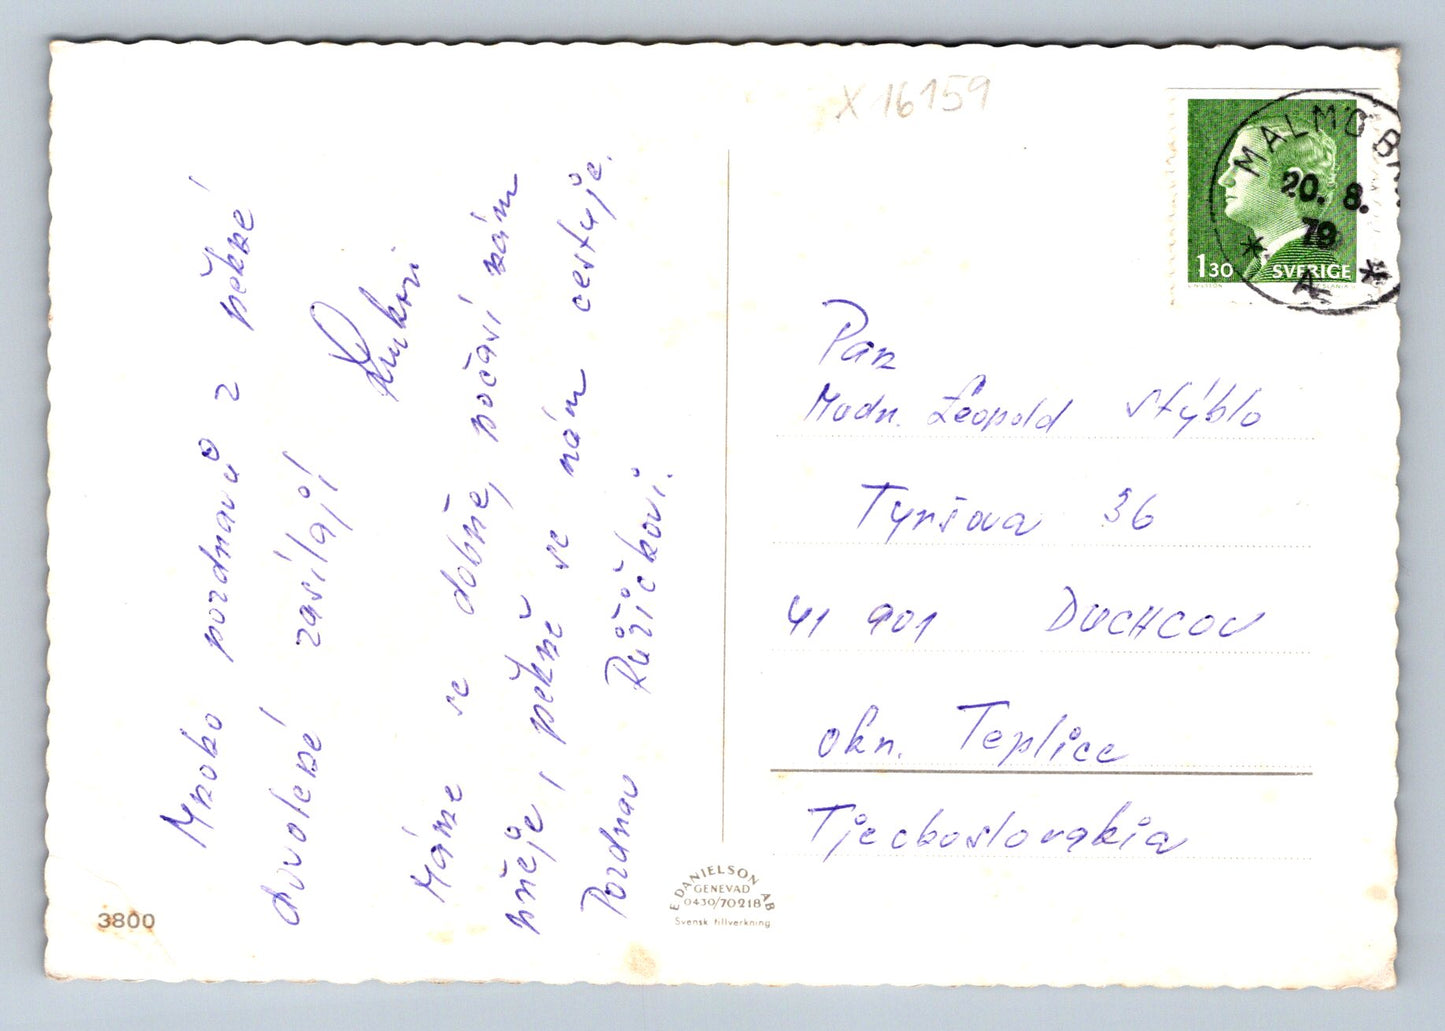 Mnoho pozdravů z pěkné
dovolené zasílají
Máme se dobře, počasí nám
přeje, pěkně se nám cestuje.
Pozdrav Růžičkovi.
3800
E DANIELSON AB
GENEVAD
0430/70218
Svensk tillverkning
X 16159
MALMÖ BAN
20. 8.
79
* A *
1 30 SVERIGE
Pan
Leopold Stýblo
Tyršova 36
41 901 DUCHCOV
okr. Teplice
Tjechoslovakia